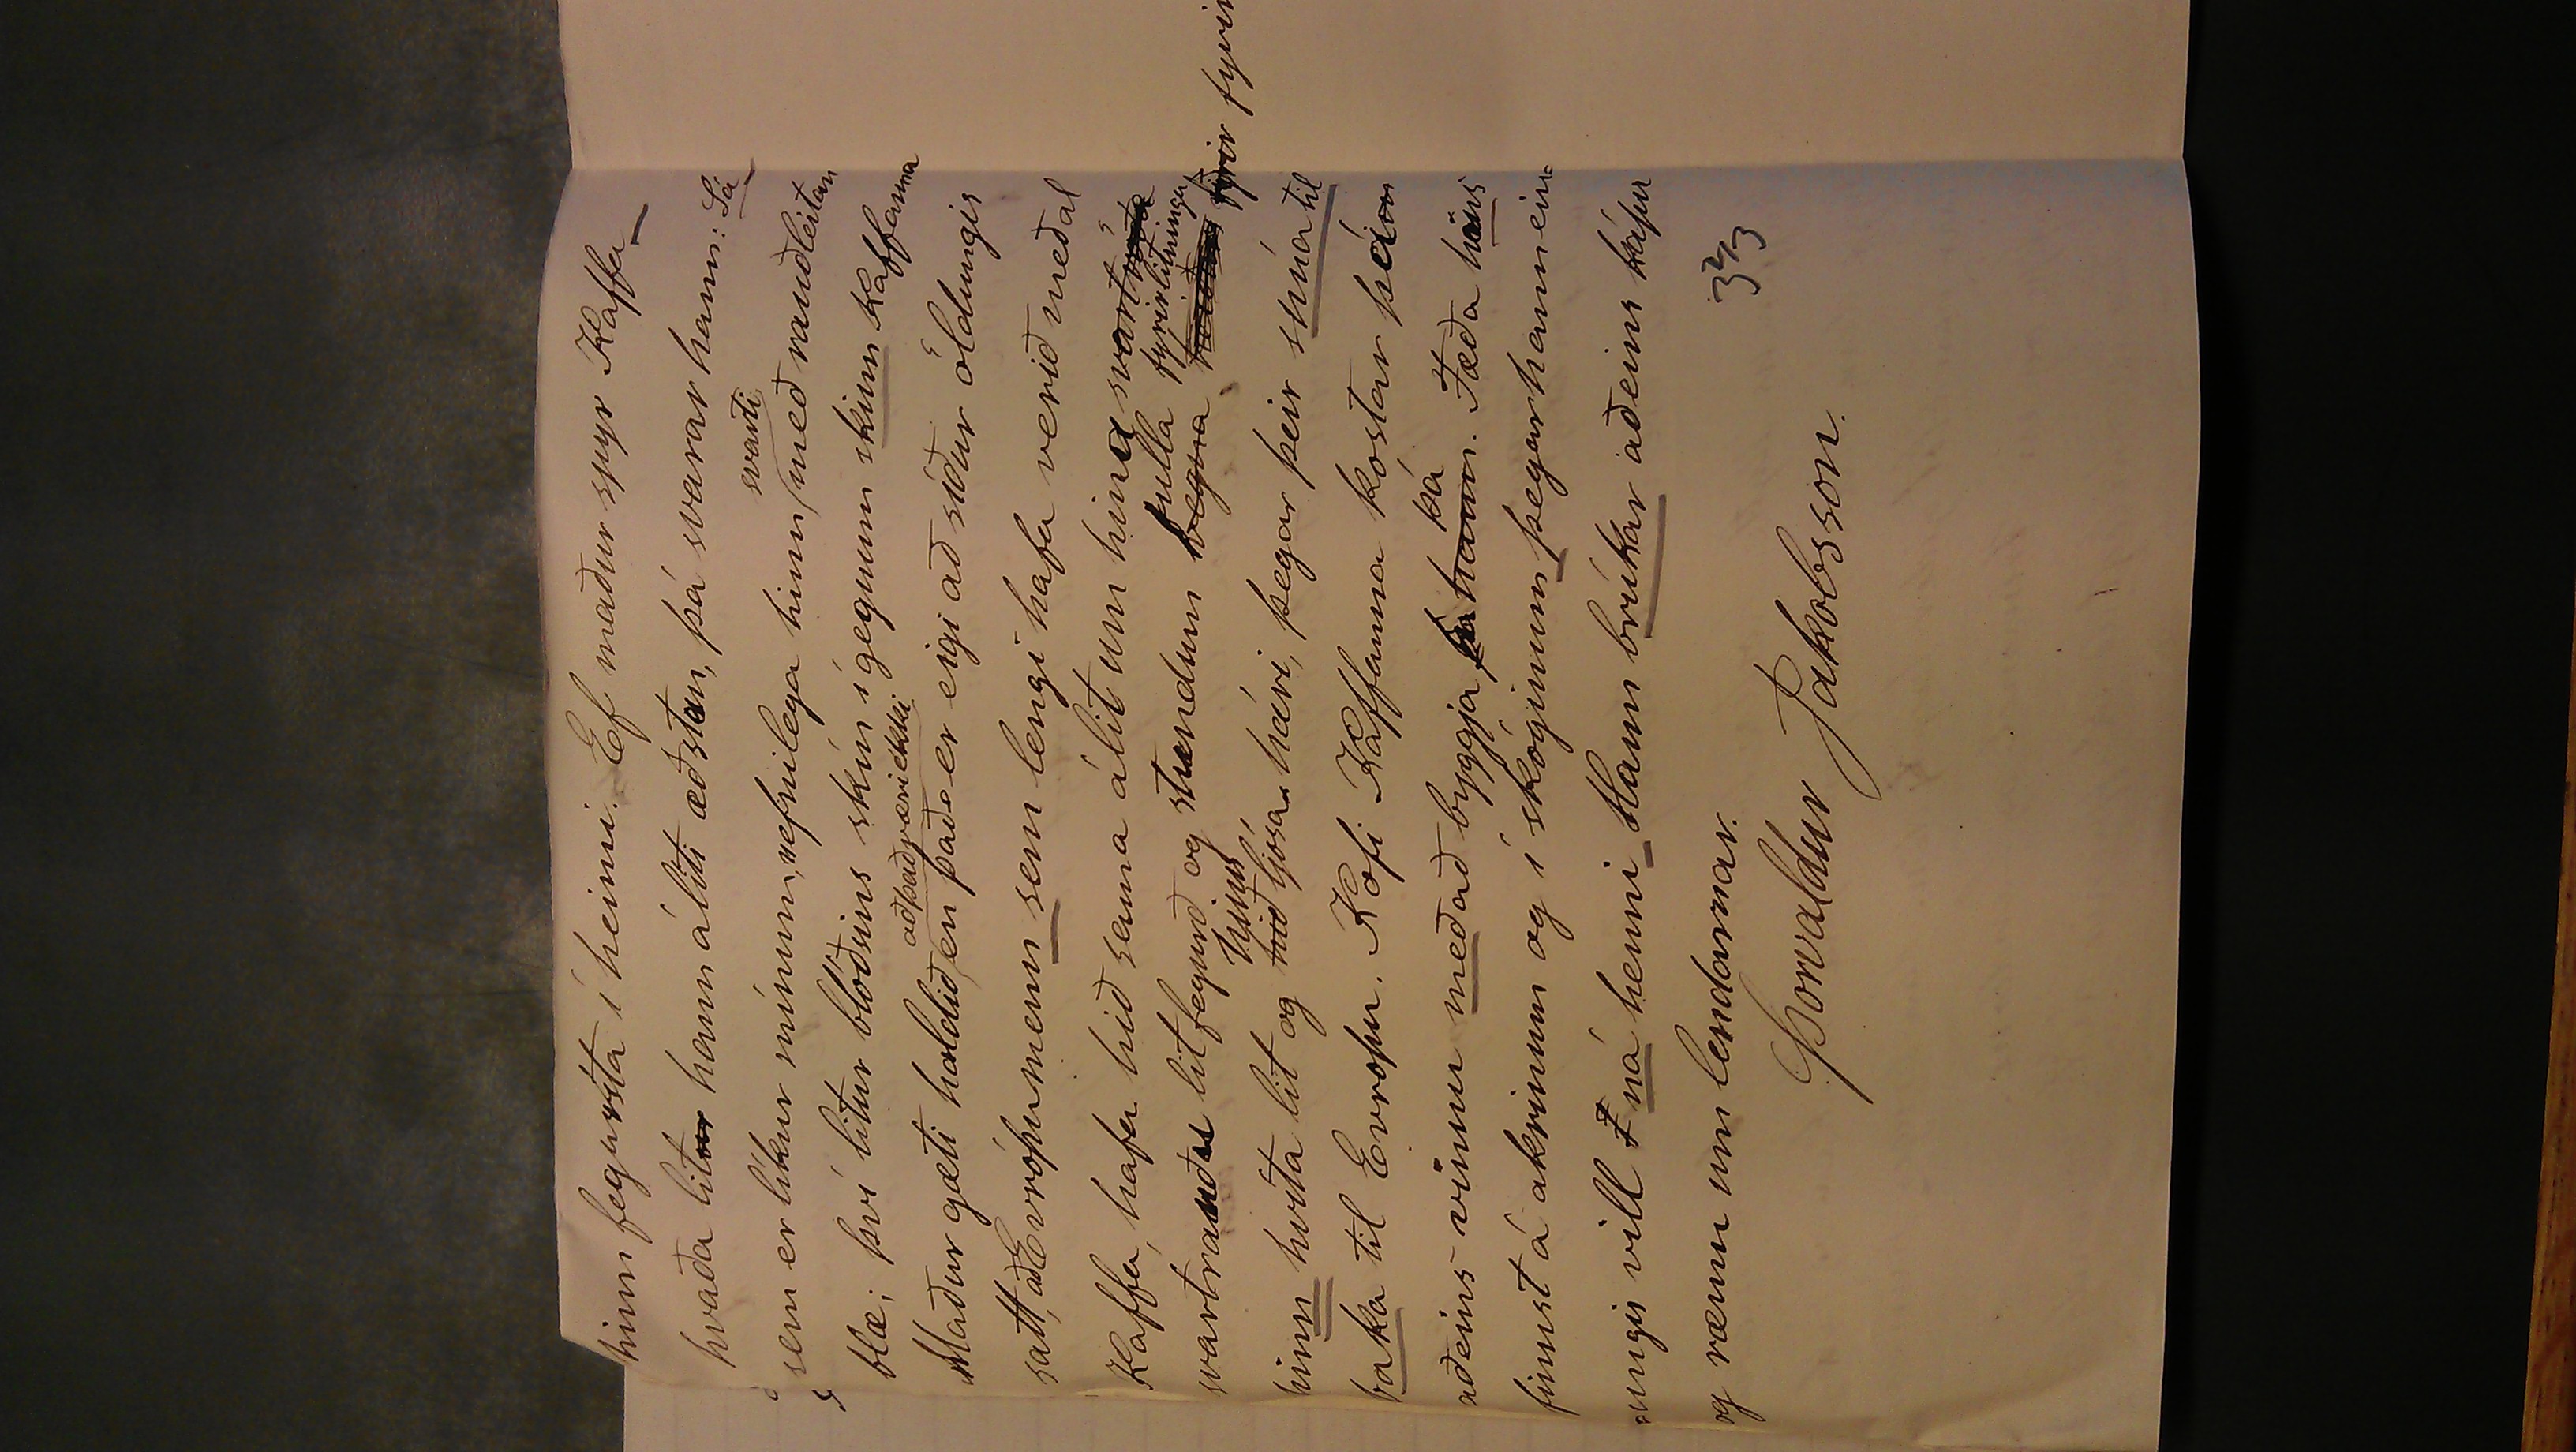 hinn fegursta í heimi. Ef maður spyr Kaffa
hvaða litur hann áliti æðstan, þá svarar hann: Sá
svarti
sem er líkur mínum, nefnilega hinn með rauðleitan
blæ; því litur blóðsins skín ígegnum skinn Kaffanna
að það væri ekki
Maður gæti haldið en það er eigi að síður öldungis
satt, að Evrópumenn sem lengi hafa verið meðal
Kaffa, hafa hið sama álit um hina svart
svartrauðu litfegurð og stundum bera fulla fyrirlitningu fyrir fyrir
hinn hvíta lit og hið hinu ljósa hári, þegar þeir snúa til
baka til Evropu. Kofi Kaffanna kostar þá
aðeins vinnu með að byggja hann. þá Fæða hans
finnst á akrinum og í skóginum þegar hann ein
ungis vill ná henni Hann brúkar aðeins kápu
og ræmu um lendarnar.
3 2/3
Þorvaldur Jakobsson.